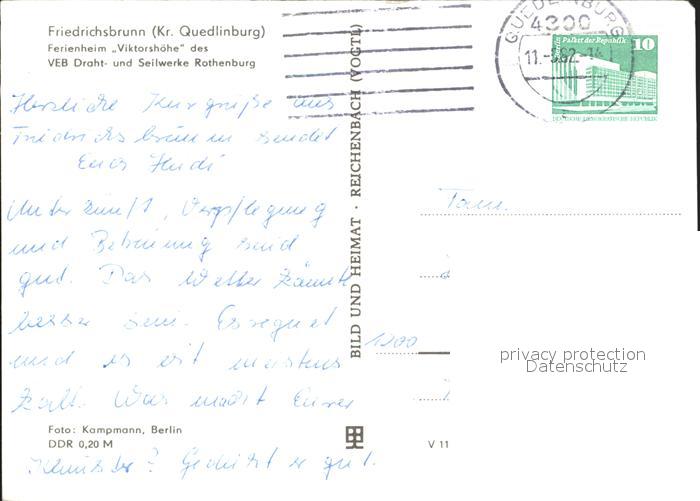 Friedrichsbrunn (Kr. Quedlinburg)
Ferienheim „Viktorshöhe" des
VEB Draht- und Seilwerke Rothenburg
Herzliche Kurgrüße aus
Friedrichsbrunn sendet
Euch Hudi
Unterkunft, Verpflegung
und Betreuung sind
gut. Das Wetter könnte
besser sein. Es regnet
und es ist meistens
kalt. Was macht Euer
? Gedeiht er gut.
Foto: Kampmann, Berlin
DDR 0,20 M
BILD UND HEIMAT · REICHENBACH (VOGTL)
V 11
QUEDLINBURG
4300
Berlin Palast der Republik
10
DEUTSCHE DEMOKRATISCHE REPUBLIK
Fam.
1200
privacy protection
Datenschutz